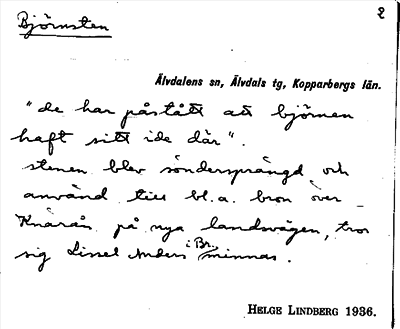 Björnsten
2
Älvdalens sn, Älvdals tg, Kopparbergs län.
"de har påstått att björnen
haft sitt ide där".
stenen blev söndersprängd och
använd till bl.a. bron över
Knarån på nya landsvägen, tror
sig Lissel Anders i Br. minnas.
HELGE LINDBERG 1936.